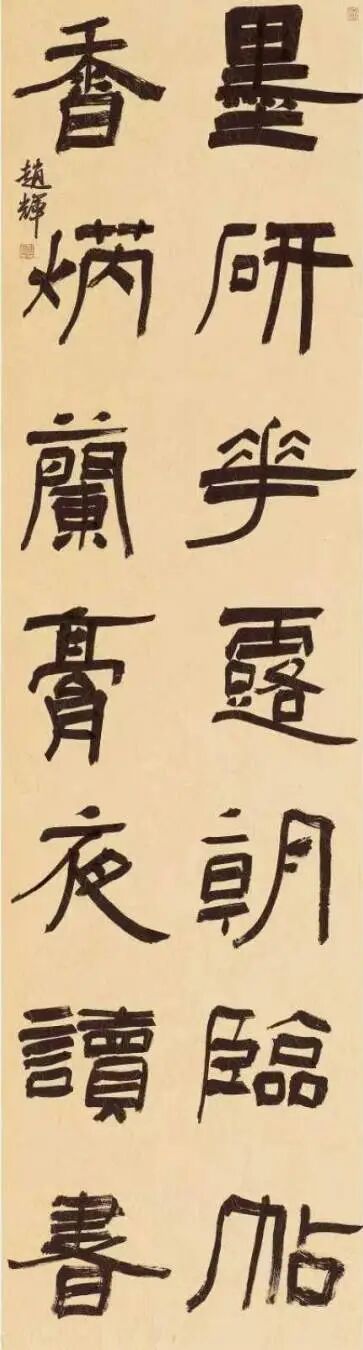 墨研華露朝臨帖
香焫蘭膏夜讀書
趙輝